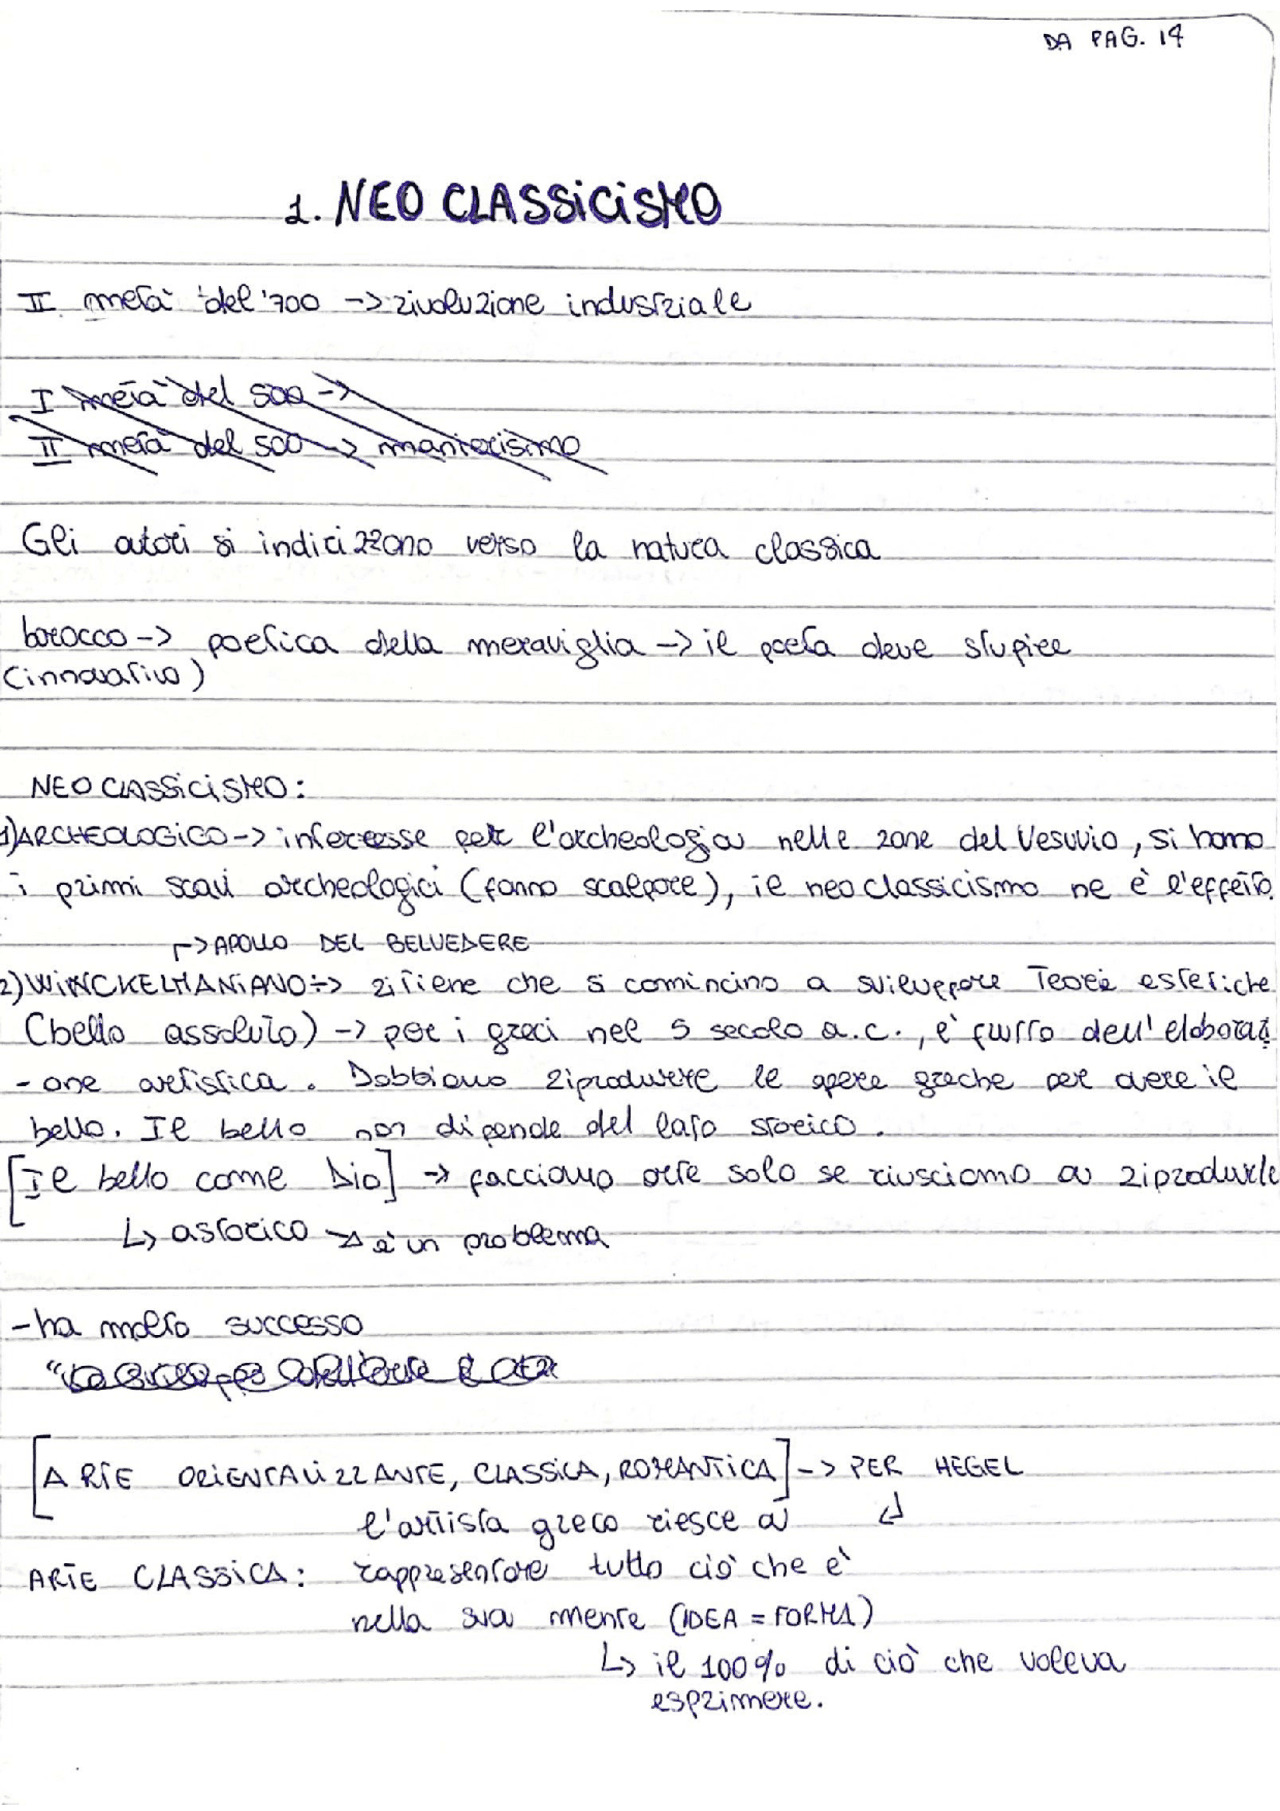 DA PAG. 14
1. NEOCLASSICISMO
II metà del '700 -> rivoluzione industriale
I metà del 500 ->
II metà del 500 -> manierismo
Gli autori si indirizzano verso la natura classica
barocco -> poetica della meraviglia -> il poeta deve stupire
(innovativo)
NEOCLASSICISMO:
1) ARCHEOLOGICO -> interesse per l'archeologia nelle zone del Vesuvio, si hanno
i primi scavi archeologici (fanno scalpore), il neoclassicismo ne è l'effetto.
-> APOLLO DEL BELVEDERE
2) WINCKELMANIANO -> ritiene che si comincino a sviluppare Teorie estetiche
(bello assoluto) -> per i greci nel 5 secolo a.c., è frutto dell'elborazi
- one artistica. Dobbiamo riprodurere le opere greche per avere il
bello. Il bello non dipende del lato storico.
[Il bello come Dio] -> facciamo arte solo se riusciamo a riprodurle
↳ astorico -> è un problema
- ha molto successo
[ARTE ORIENTALIZZANTE, CLASSICA, ROMANTICA] -> PER HEGEL
l'artista greco riesce a ↲
ARTE CLASSICA: rappresentare tutto ciò che è
nella sua mente (IDEA = FORMA)
↳ il 100% di ciò che voleva
esprimere.